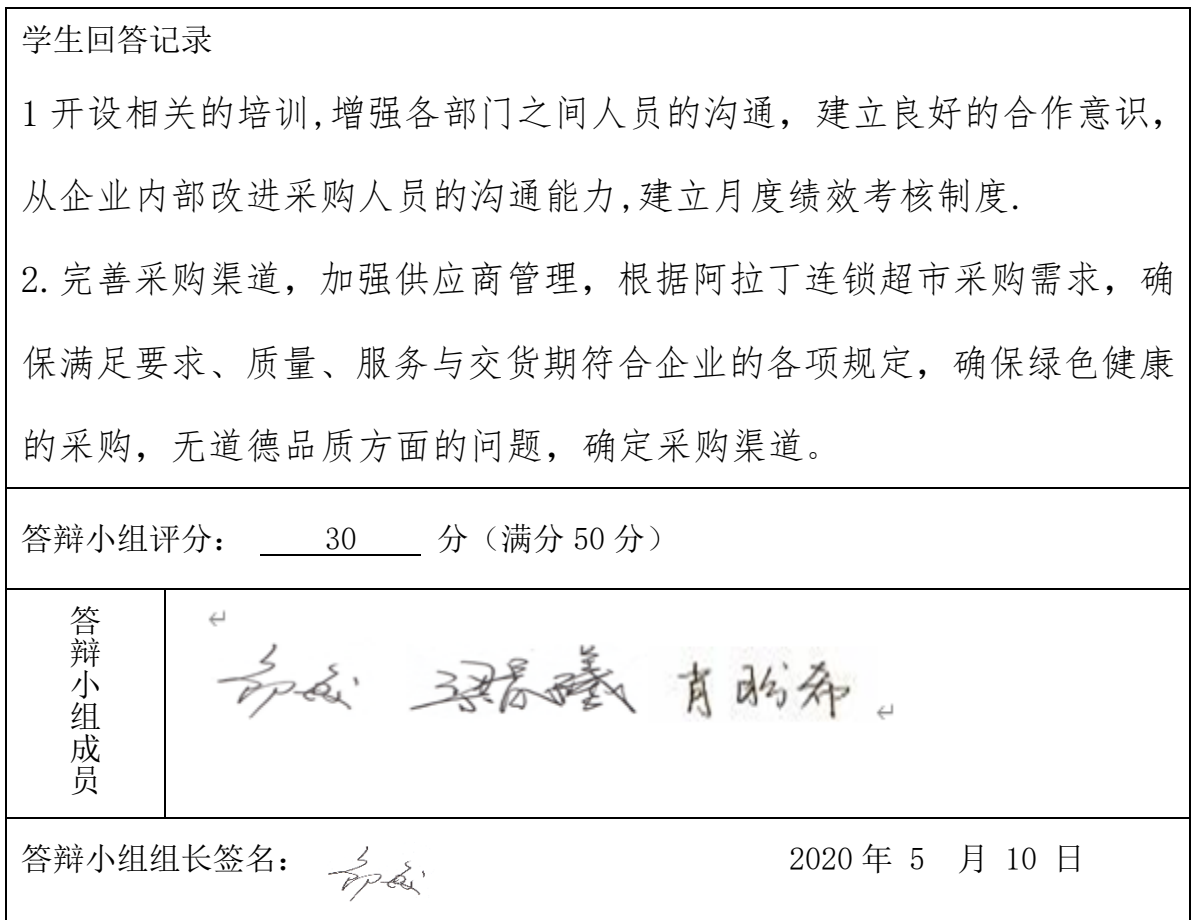 学生回答记录
1开设相关的培训,增强各部门之间人员的沟通，建立良好的合作意识，
从企业内部改进采购人员的沟通能力,建立月度绩效考核制度.
2.完善采购渠道，加强供应商管理，根据阿拉丁连锁超市采购需求，确
保满足要求、质量、服务与交货期符合企业的各项规定，确保绿色健康
的采购，无道德品质方面的问题，确定采购渠道。
答辩小组评分： 30 分（满分50分）
答辩小组成员
答辩小组组长签名： 2020年 5 月 10 日